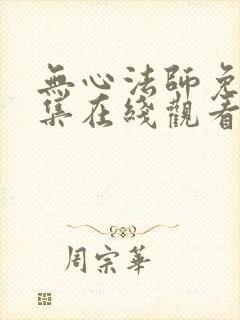 無心法師免
集在綫觀看
周宗華